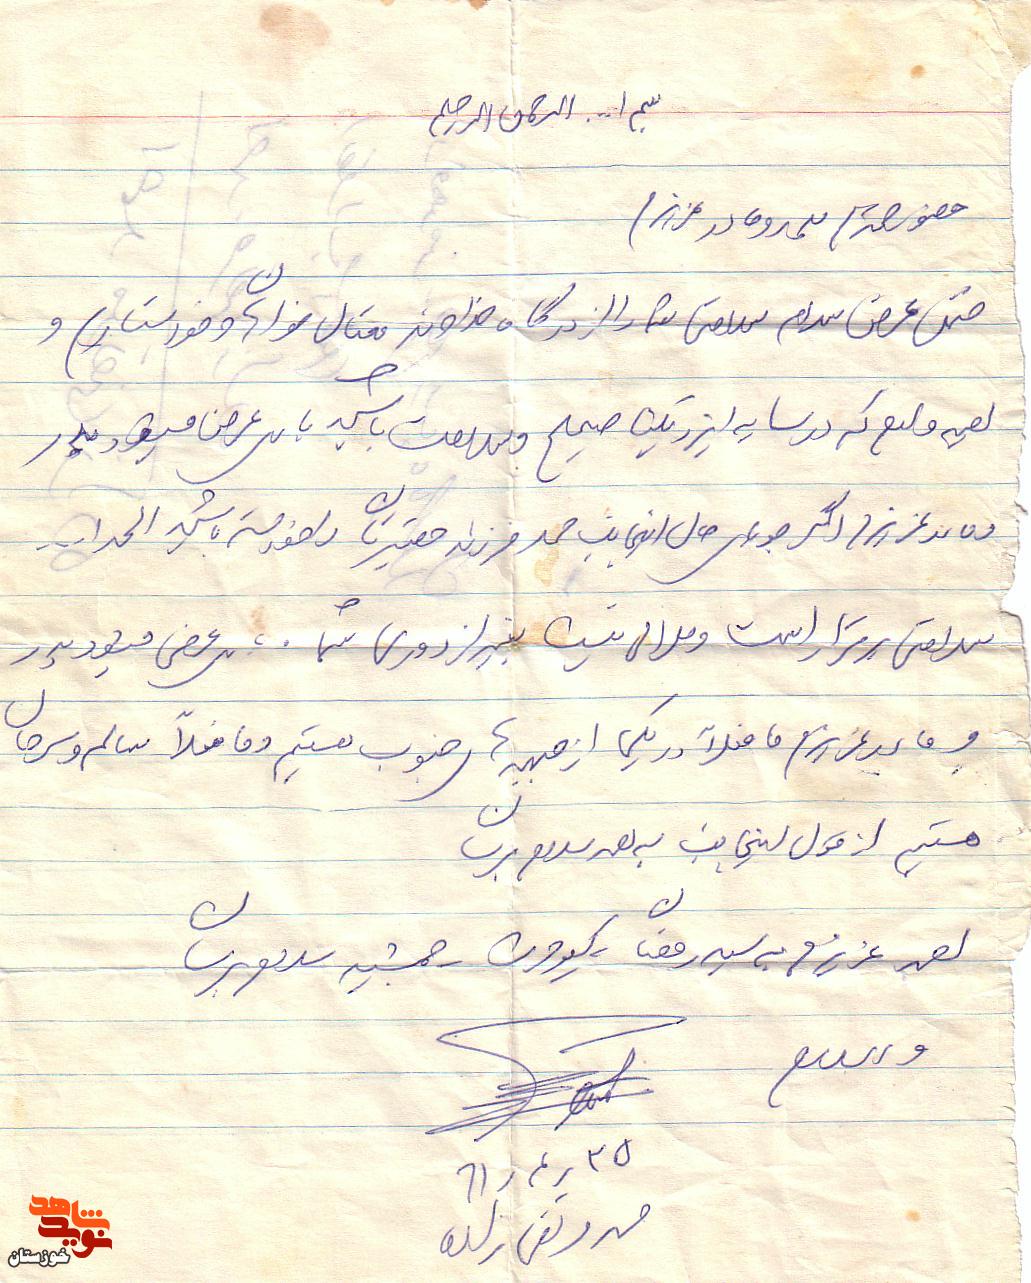 بسم ا... الرحمن الرحیم
حضور محترم پدر و مادر عزیزم
ضمن عرض سلام سلامتی شما را از درگاه خداوند متعال خواهان و خواستارم و
امیدوارم که در سایه ایزد یکتا صحیح و سلامت باشید باری عرض میشود پدر
و مادر عزیزم اگر جویای حال اینجانب فرزند حقیرتان را خواسته باشید الحمدا...
سلامتی برقرار است و ملالی نیست بغیر از دوری شما عرض میشود پدر
و مادر عزیزم ما فعلاً در یکی از جبهه های جنوب هستیم و ما فعلاً سالم و سرحال
هستیم از قول اینجانب به همه سلام برسان
عزیزم به رفقا جمشید سلام برسان
والسلام
۲۵ ر ۴ ر ۶۱
نوید شاهد
خوزستان